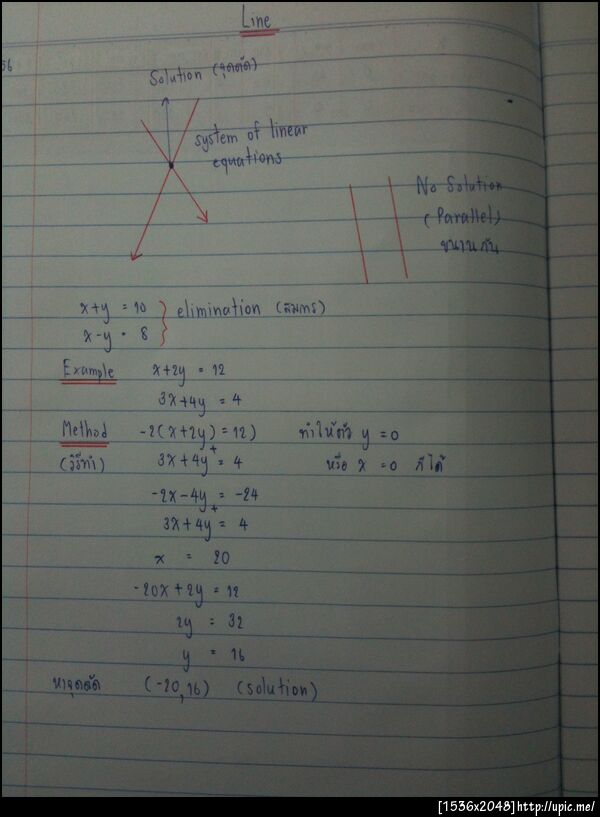 Line
56
Solution (จุดตัด)
system of linear
equations
No Solution
(Parallel)
ขนานกัน
x+y = 10
x-y = 8
elimination (สมการ)
Example x+2y = 12
3x+4y = 4
Method -2(x+2y) = 12) ทำให้ตัว y = 0
(วิธีทำ) 3x+4y + = 4 หรือ x = 0 ก็ได้
-2x-4y = -24
3x+4y + = 4
x = 20
-20x+2y = 12
2y = 32
y = 16
หาจุดตัด (-20,16) (solution)
[1536x2048]http://upic.me/